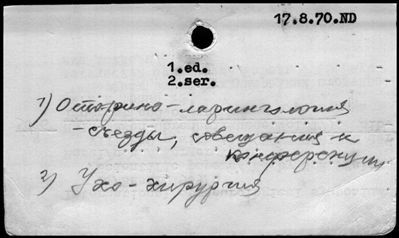 17.8.70.ND
1.ed.
2.ser.
1) Оторино-ларингология
- съезды, совещания и
конференции
2) Ухо-хирургия